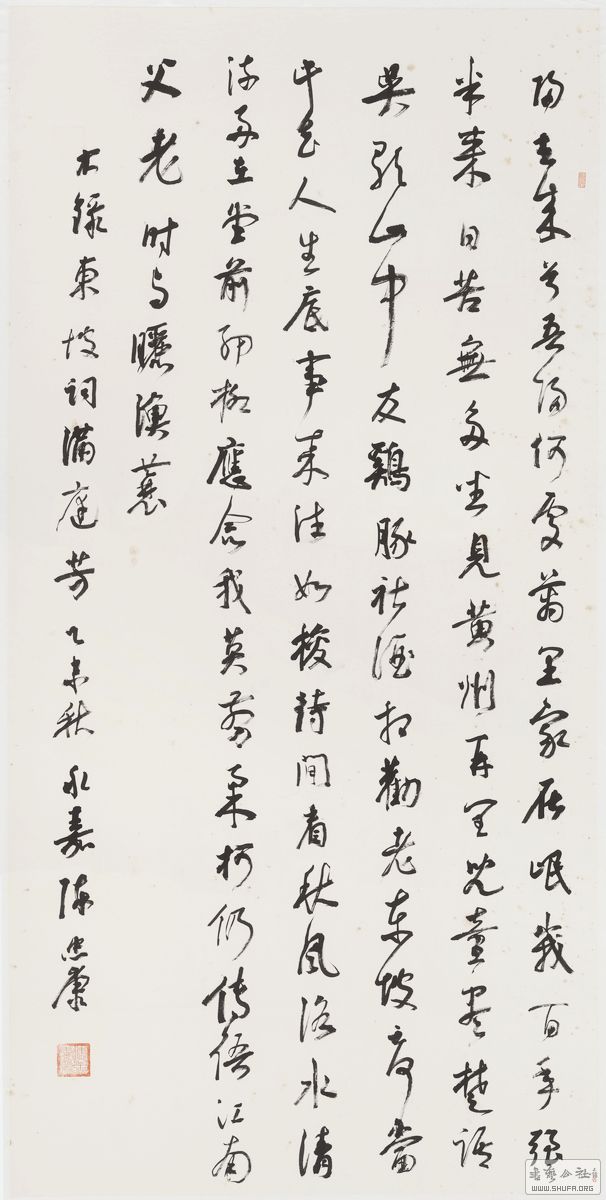 歸去來兮吾歸何處萬里家在岷峨百年強
半來日苦無多坐見黃州再閏兒童盡楚語
吳歌山中友鷄豚社酒相勸老東坡云何當
此去人生底事來往如梭待閒看秋風洛水清
波好在堂前細柳應念我莫剪柔柯仍傳語江南
父老時與曬漁蓑
右錄東坡詞滿庭芳乙未秋永嘉陳忠康
書藝公社
WWW.SHUFA.ORG